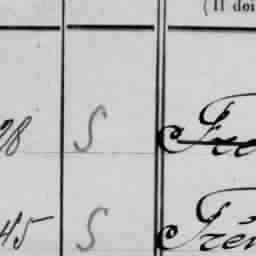 (Il doi
28 S Fré
45 S Frén